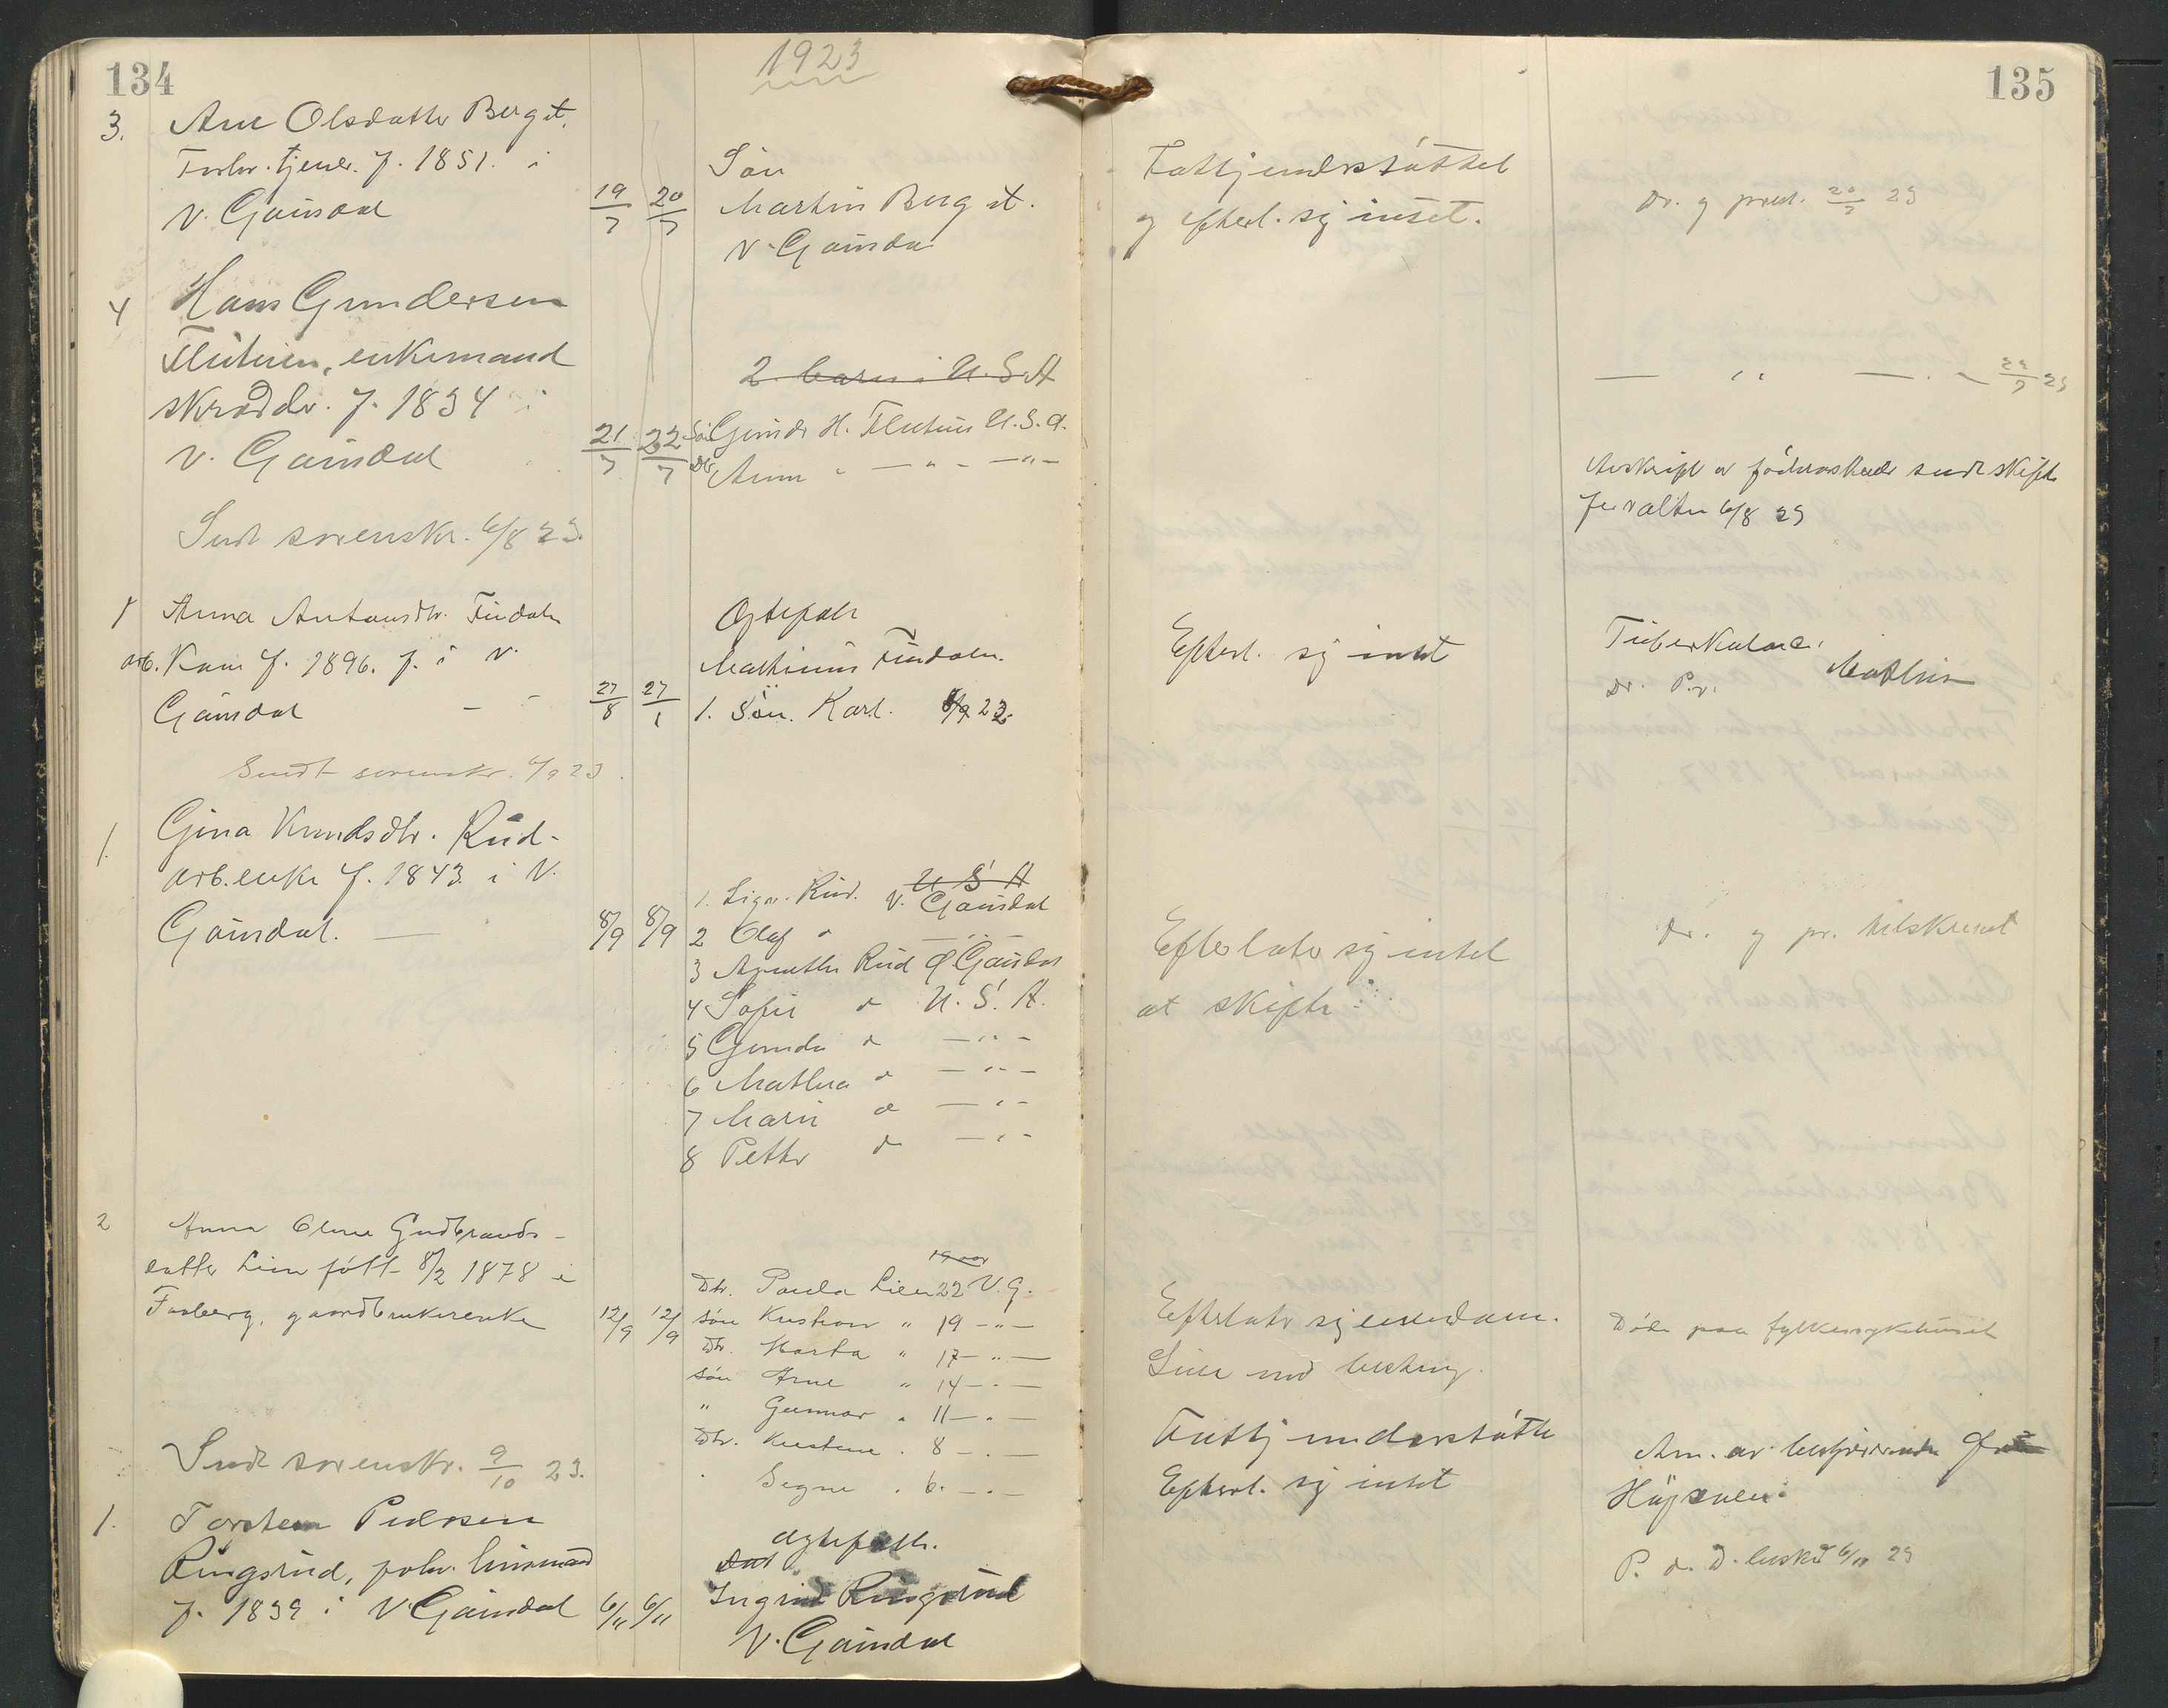 134
1923
3. Ane Olsdatter Berg et.
Forhv. tjener. f. 1851. i
V. Gausdal
19/7 20/7
Søn
Martin Berg et.
V. Gausdal
4 Hans Gundersen
Flutuen, enkemand
skrædder. f. 1834 i
V. Gausdal
21/7 22/7
2 barn i U.S.A
Søn Gunder H. Flutuen U.S.A.
Dtr. Anna " — " — — " —
Sendt sorenskr. 6/8 23.
1 Anna Antonsdtr. Findalen
arb. kone f. 1896. f. i V.
Gausdal — -
27/8 27/1
Ægtefælle
Mathinius Findalen.
1. Søn. Karl. 8/9 22
Sendt sorenskr. 6/9 23.
1. Gina Knudsdtr. Rud-
arb.enke f. 1843. i V.
Gausdal. —
8/9 8/9
U S A
1. Sign. Rud. V. Gausdal
2 Olaf " — " —
3 Agnethe Rud Ø. Gausdal
4 Sofie " U. S. A.
5 Gunda " — " —
6 Mathea " — " —
7 Marie " — " —
8 Petter " — " —
2 Anna Oline Gudbrands-
datter Lien født 8/2 1878 i
Faaberg, gaardbrukerenke
12/9 12/9
19 aar
Dtr. Paula Lien 22 V.G.
søn Kristian " 19 — " —
Dtr. Marta " 17 — " —
søn Arne " 14 — " —
" Gunnar " 11 — " —
Dtr. Kristine " 8 — " —
" Signe " 6. — " —
Sendt sorenskr. 9/10 23.
1. Torsten Pedersen
Ringsrud, forhv. husmand
f. 1839 i V. Gausdal
6/11 6/11
Ægtefælle.
Ingrid Ringsrud
V. Gausdal
135
Fattigunderstøttet
og efterl. sig intet.
Dr. og prest. 20/7 23
— " — . — 22/7 23
Avskrift av sendt skifte
forvalter 6/8 23
Efterl. sig intet
Tuberkulose.
Dr. Pr.
Efterlater sig intet
at skifte.
Dr. og pr. tilskrevet
Efterlater sig eiendom.
Lien med besetning.
Døde paa fylkessykehuset
Fattigunderstøtte
Efterl. sig intet
Anm. av
P. o. D. besked 6/11 23